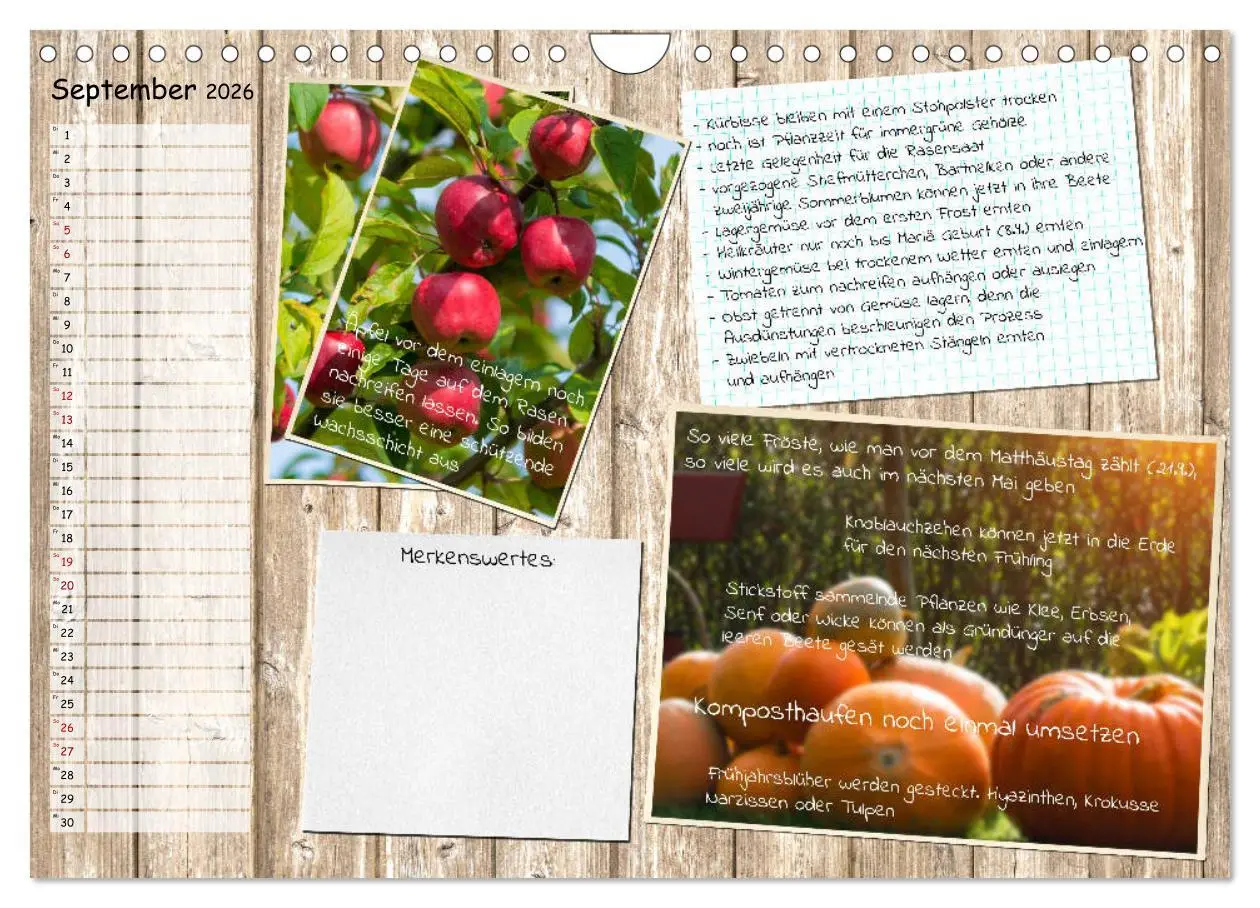 September 2026
Di 1
Mi 2
Do 3
Fr 4
Sa 5
So 6
Mo 7
Di 8
Mi 9
Do 10
Fr 11
Sa 12
So 13
Mo 14
Di 15
Mi 16
Do 17
Fr 18
Sa 19
So 20
Mo 21
Di 22
Mi 23
Do 24
Fr 25
Sa 26
So 27
Mo 28
Di 29
Mi 30
Äpfel vor dem einlagern noch
einige Tage auf dem Rasen
nachreifen lassen. So bilden
sie besser eine schützende
Wachsschicht aus
- Kürbisse bleiben mit einem Stohpolster trocken
- noch ist Pflanzzeit für immergrüne Gehölze
- Letzte Gelegenheit für die Rasensaat
- vorgezogene Stiefmütterchen, Bartnelken oder andere
zweijährige Sommerblumen können jetzt in ihre Beete
- Lagergemüse vor dem ersten Frost ernten
- Heilkräuter nur noch bis Mariä Geburt (8.9.) ernten
- Wintergemüse bei trockenem Wetter ernten und einlagern
- Tomaten zum nachreifen aufhängen oder auslegen
- Obst getrennt von Gemüse lagern, denn die
Ausdünstungen beschleunigen den Prozess
- Zwiebeln mit vertrockneten Stängeln ernten
und aufhängen
Merkenswertes:
So viele Fröste, wie man vor dem Matthäustag zählt (21.9.),
so viele wird es auch im nächsten Mai geben
Knoblauchzehen können jetzt in die Erde
für den nächsten Frühling
Stickstoff sammelnde Pflanzen wie Klee, Erbsen,
Senf oder Wicke können als Gründünger auf die
leeren Beete gesät werden
Komposthaufen noch einmal umsetzen
Frühjahrsblüher werden gesteckt. Hyazinthen, Krokusse
Narzissen oder Tulpen